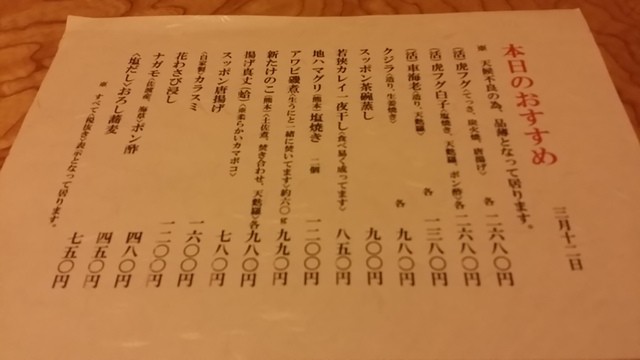 本日のおすすめ
三月十二日
※ 天候不良の為、品薄となって居ります。
〈活〉虎フグ〈てっさ、炭火焼、唐揚げ〉 各 二六八〇円
〈活〉虎フグ白子〈塩焼き、天麩羅、ポン酢〉各 二六八〇円
〈活〉車海老〈造り、天麩羅〉 各 一三八〇円
クジラ〈造り、生姜焼き〉 各 九八〇円
スッポン茶碗蒸し 九〇〇円
若狭カレイ一夜干し〈食べ易く成ってます〉 八五〇円
地ハマグリ〈熊本〉塩焼き 二個 一二〇〇円
アワビ磯煮〈生うにと一緒に焚いてます〉約六〇g 九九〇円
新たけのこ〈熊本〉〈土佐煮、焚き合わせ、天麩羅〉各 九八〇円
揚げ真丈〈蛤〉〈※柔らかいカマボコ〉
スッポン唐揚げ 七八〇円
〈自家製〉カラスミ 一六〇〇円
花わさび浸し
ナガモ〈佐渡産、海草〉ポン酢 四八〇円
〈塩だし〉おろし蕎麦
※ すべて〈税抜き〉表示となって居ります。
一二〇〇円
四五〇円
七五〇円